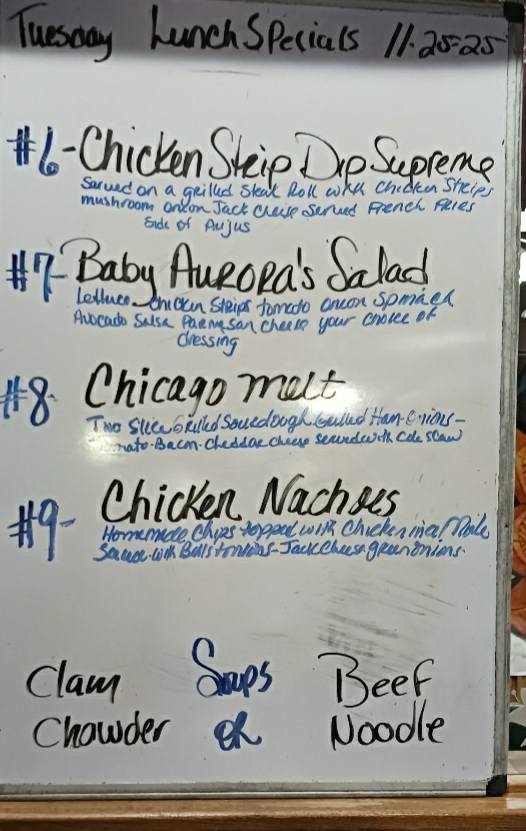 Tuesday Lunch Specials 11-25-25
#6- Chicken Strip Dip Supreme
Served on a grilled Steak Roll with Chicken Strips
mushroom onion Jack Cheese Served French Fries
Side of Aujus
#7- Baby Aurora's Salad
Lettuce chicken Strips tomato onion Spinach
Avocado Salsa Parmesan cheese your choice of
dressing
#8- Chicago melt
Two Slice Grilled Sourdough Grilled Ham-Onions-
Tomato-Bacon-Cheddar cheese served with Cole Slaw
#9- Chicken Nachoes
Homemade Chips topped with Chicken in a Mole
Sauce-with Jack Cheese green onions.
Clam Soups Beef
Chowder OR Noodle